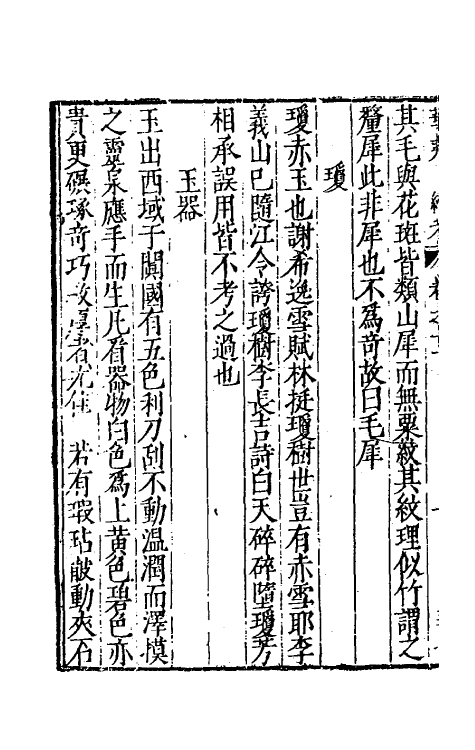 其毛與花斑皆類山犀而無粟紋其紋理似竹謂之
犛犀此非犀也不爲奇故曰毛犀
瓊
瓊赤玉也謝希逸雪賦林挺瓊樹世豈有赤雪耶李
義山已隨江令誇瓊樹李長吉詩白天碎碎墮瓊芳
相承誤用皆不考之過也
玉器
玉出西域于闐國有五色利刀刮不動温潤而澤摸
之靈泉應手而生凡看器物白色爲上黄色碧色亦
貴更碾琢奇巧敦厚者尤佳 若有瑕玷皴動夾石